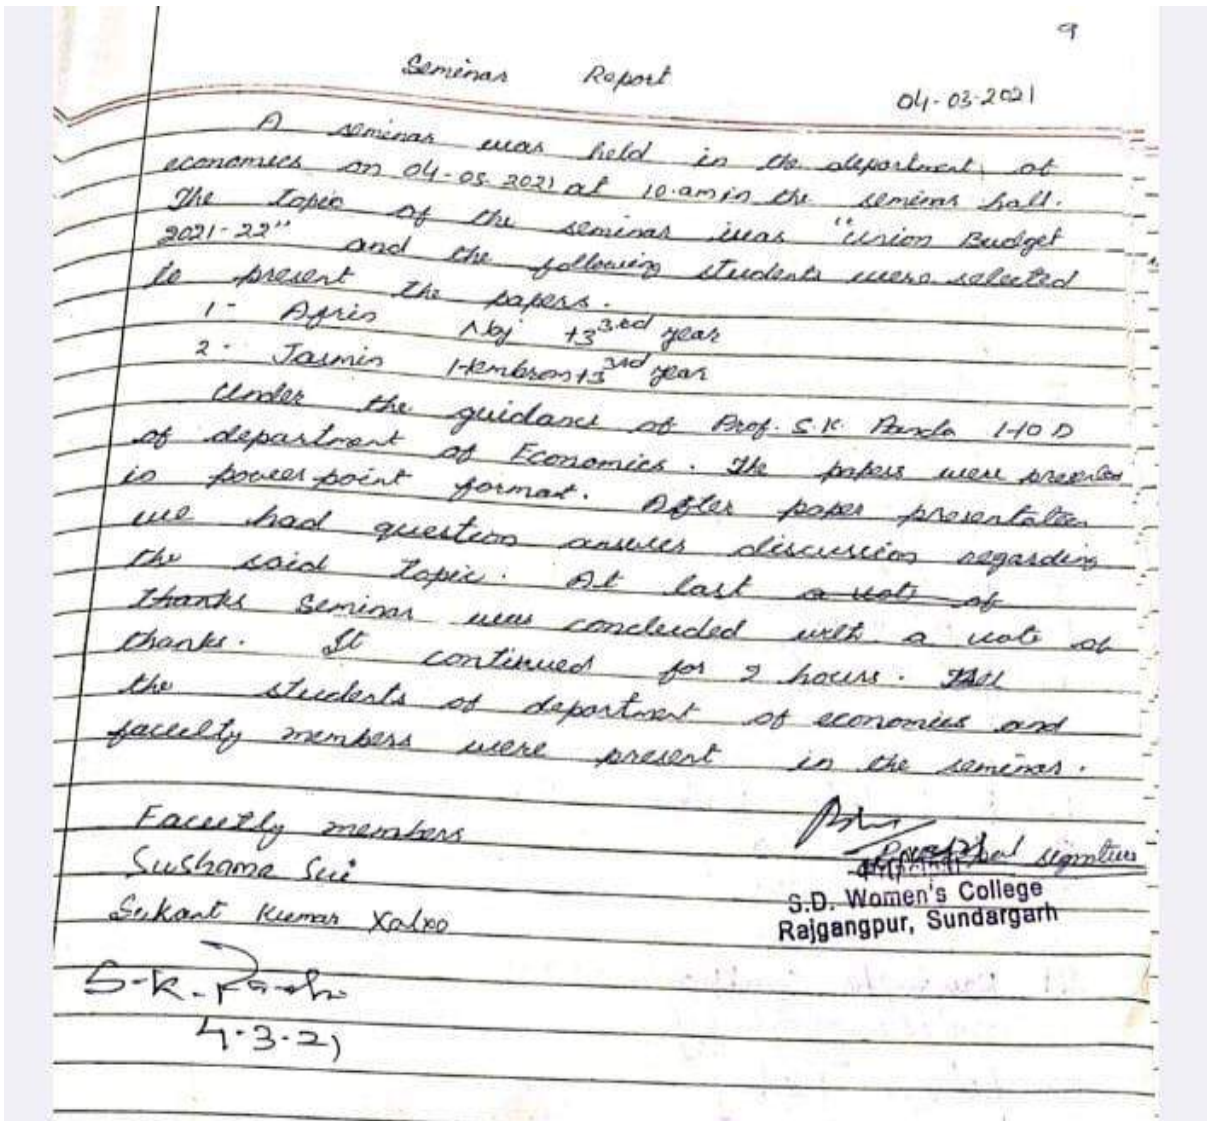 9
Seminar Report
04-03-2021
A seminar was held in the department of
economics on 04-03-2021 at 10.am in the seminar hall.
The topic of the seminar was "Union Budget
2021-22" and the following students were selected
to present the papers.
1- Afrin Naj +3 3rd year
2- Jasmin Hembrom +3 3rd year
Under the guidance of Prof. S.K. Panda HOD
of department of Economics. The papers were
in power point format. After paper presentation
we had question answer discussion regarding
the said topic. At last a vote of
thanks seminar was concluded with a vote of
thanks. It continued for 2 hours. All
the students of department of economics and
faculty members were present in the seminar.
Faculty members
Principal signature
Sushama Sui
Principal
S.D. Women's College
Sukant Kumar Xalxo
Rajgangpur, Sundargarh
S.K. Panda
4.3.21